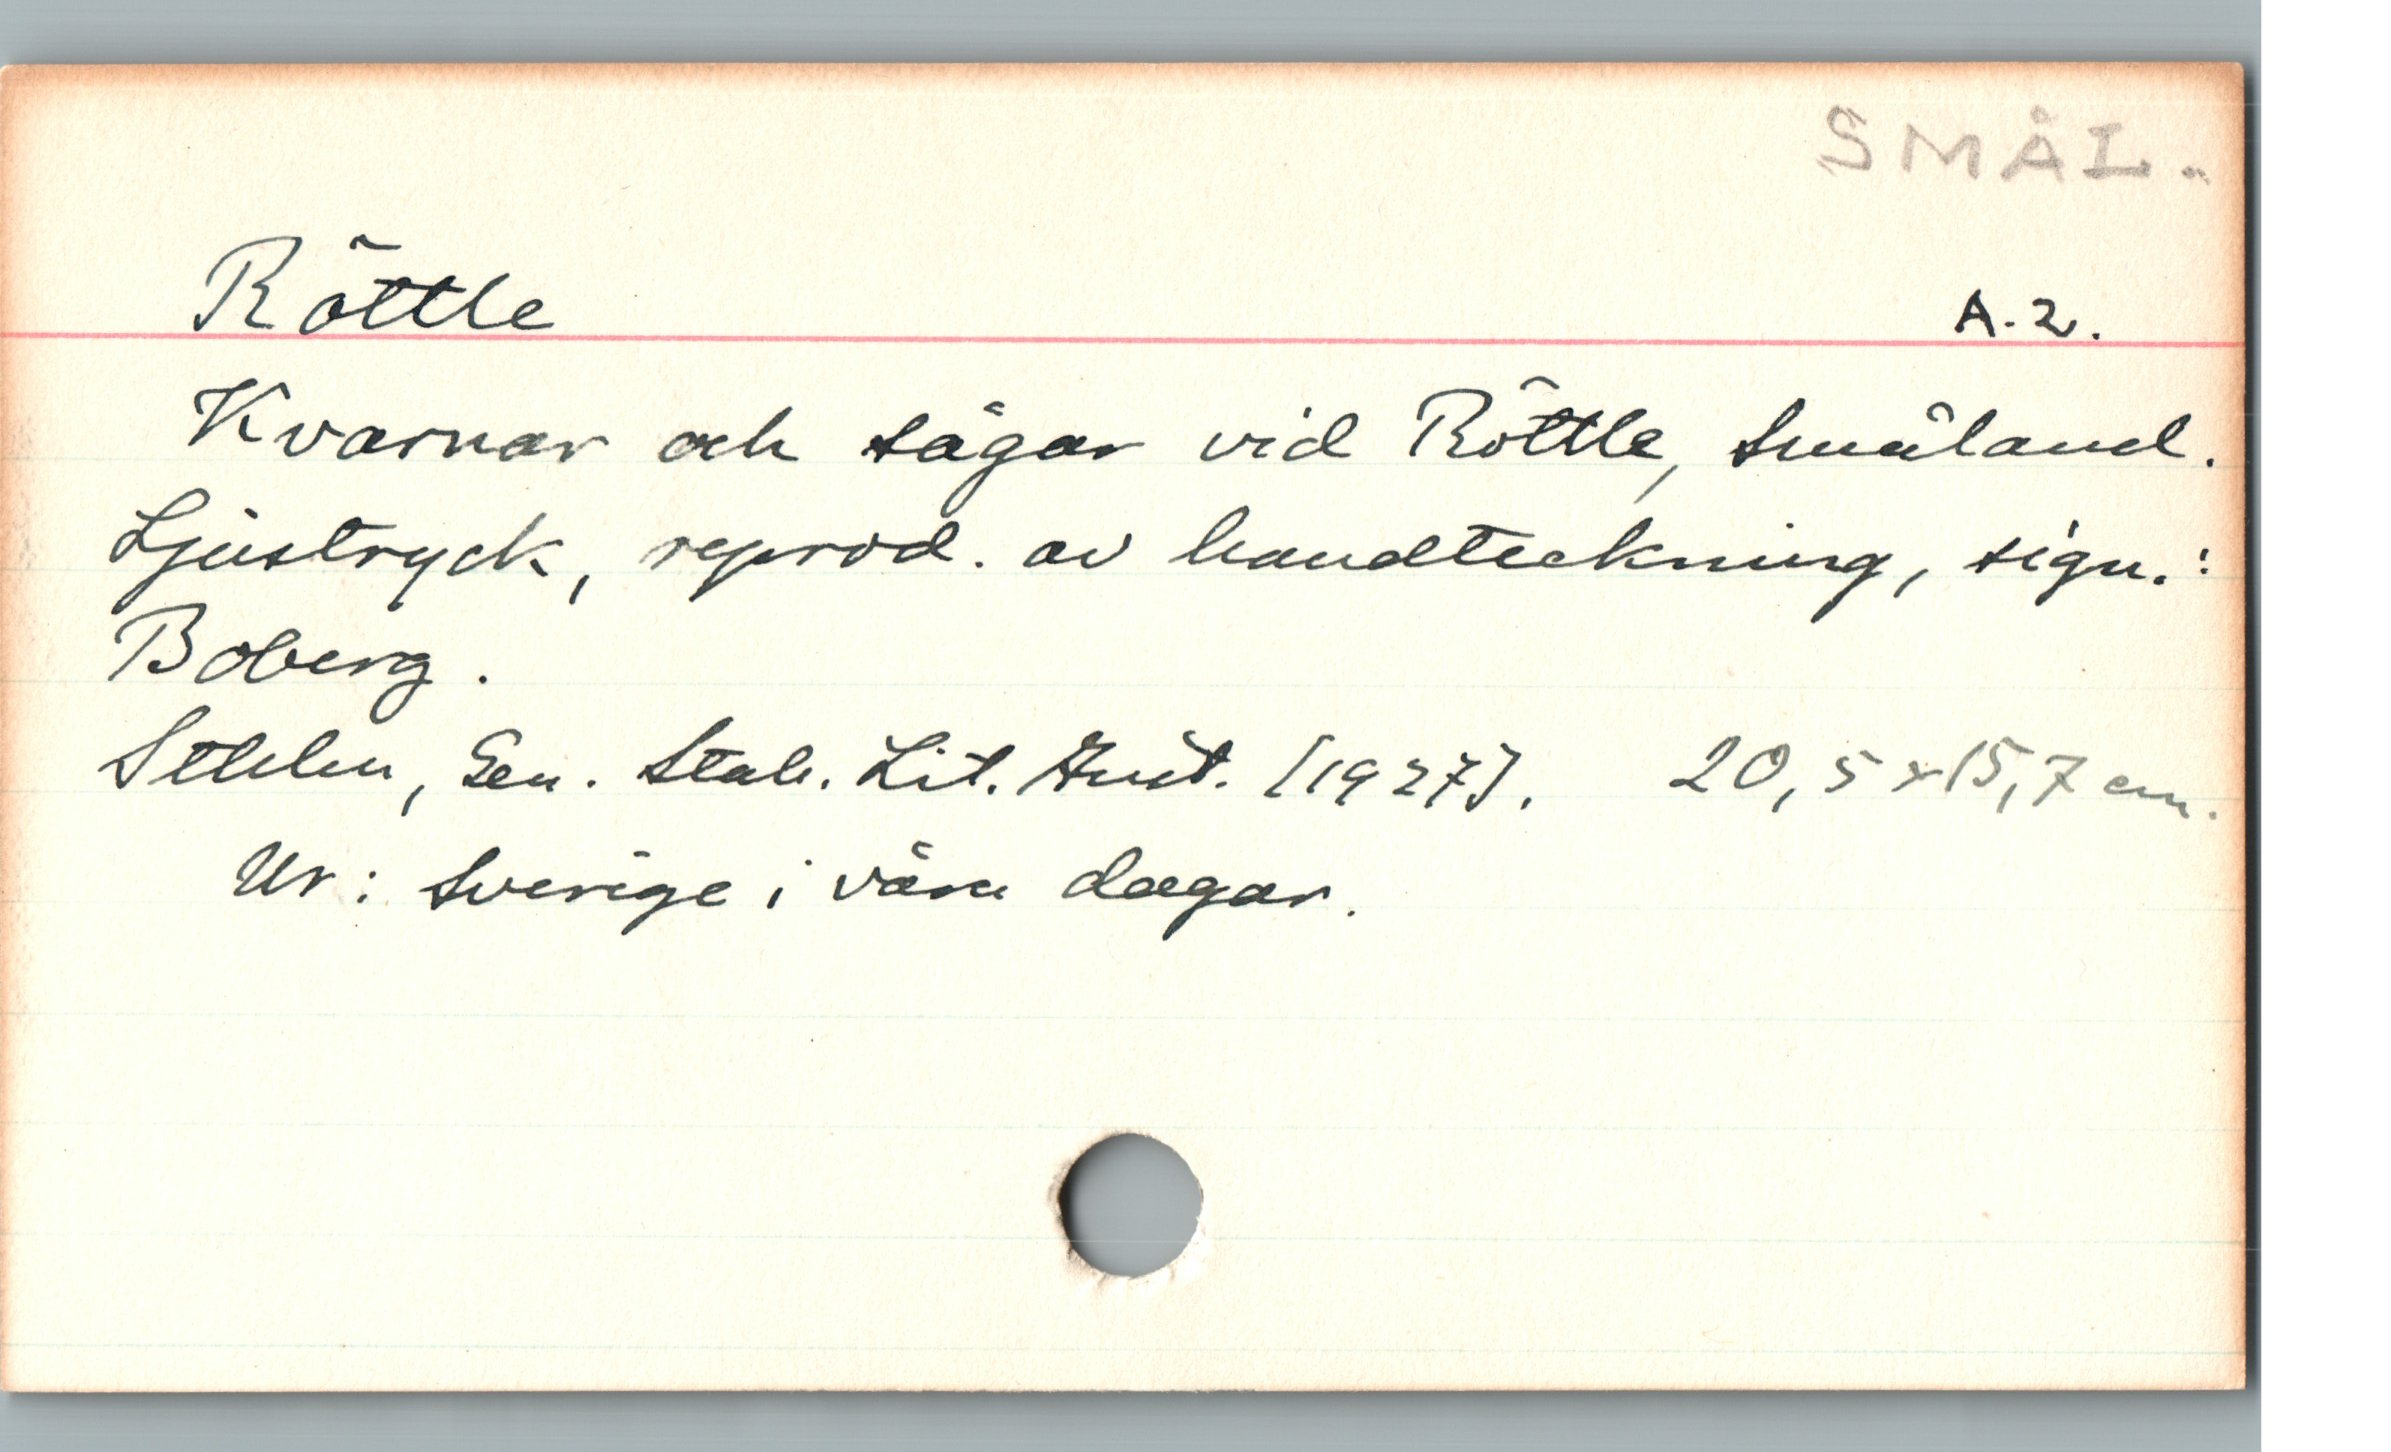 SMÅL.
Röttle A.2.
Kvarnar och sågar vid Röttle, Småland.
Ljustryck, reprod. av handteckning, sign.:
Boberg.
Sthlm, Gen. Stab. Lit. Inst. [1927]. 20,5 x 15,7 cm.
Ur: Sverige i våra dagar.